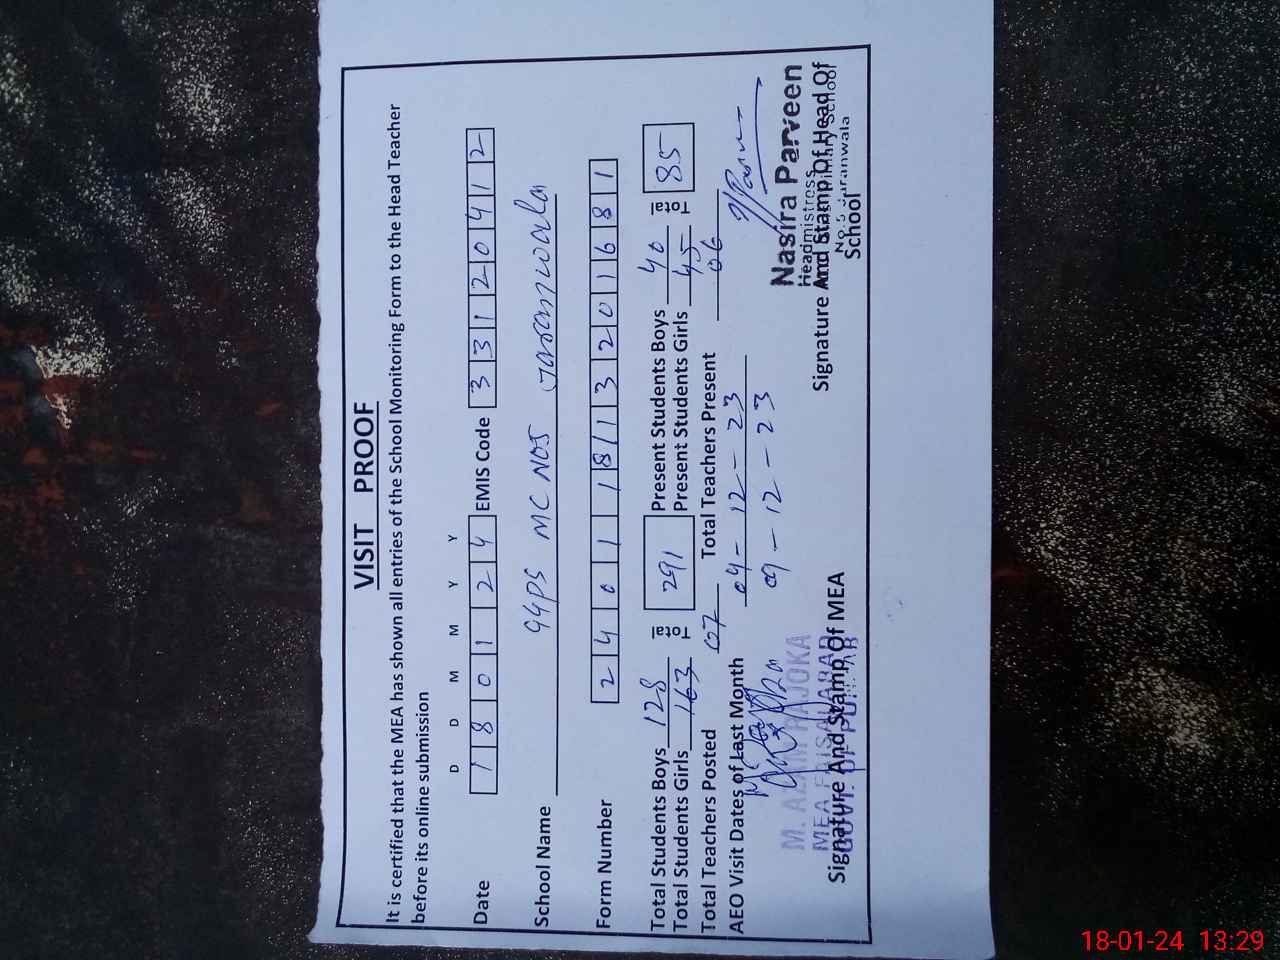 VISIT PROOF
It is certified that the MEA has shown all entries of the School Monitoring Form to the Head Teacher
before its online submission
D D M M Y Y
Date 1 8 0 1 2 4 EMIS Code 3 3 1 2 0 4 1 2
School Name GGPS MC NO5 Jaranwala
Form Number 2 4 0 1 1 8 1 3 2 0 1 6 8 1
Total Students Boys 128 Total 291 Present Students Boys 40 Total 85
Total Students Girls 163 Present Students Girls 45
Total Teachers Posted 07 Total Teachers Present 06
AEO Visit Dates of Last Month 04-12-23
09-12-23
M. AZAM RAJOKA
MEA FAISALABAD
GOVT. OF PUNJAB
Signature And Stamp Of MEA
Nasira Parveen
Headmistress
Primary School
No.5 Jaranwala
Signature And Stamp Of Head Of
School
18-01-24 13:29